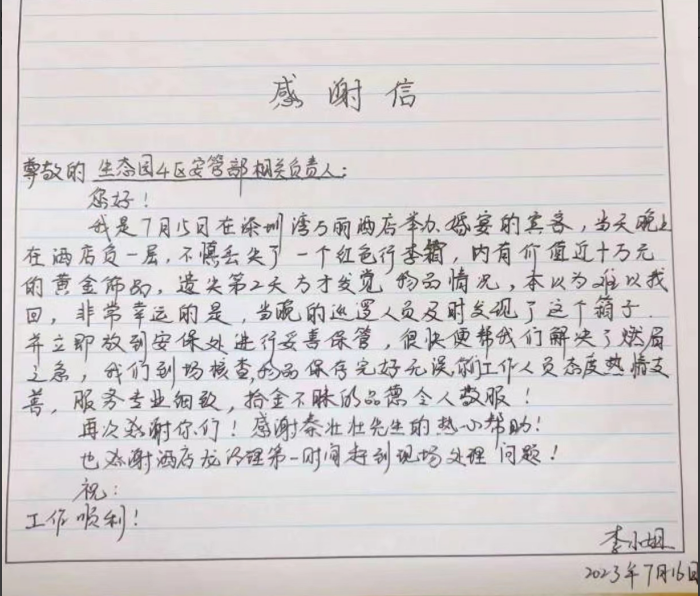 感谢信
尊敬的 生态园4区安管部相关负责人:
您好!
我是7月15日在深圳湾万丽酒店举办婚宴的宾客,当天晚上
在酒店负一层,不慎丢失了一个红色行李箱,内有价值近十万元
的黄金饰品,遗失第2天方才发觉 物品情况,本以为难以找
回,非常幸运的是,当晚的巡逻人员及时发现了这个箱子.
并立即放到安保处进行妥善保管,很快便帮我们解决了燃眉
之急,我们到场核查,物品保存完好无误,工作人员态度热情友
善,服务专业细致,拾金不昧的品德令人敬服!
再次感谢你们!感谢秦壮壮先生的热心帮助!
也感谢酒店经理第一时间赶到现场处理问题!
祝:
工作顺利!
李小姐
2023年7月16日